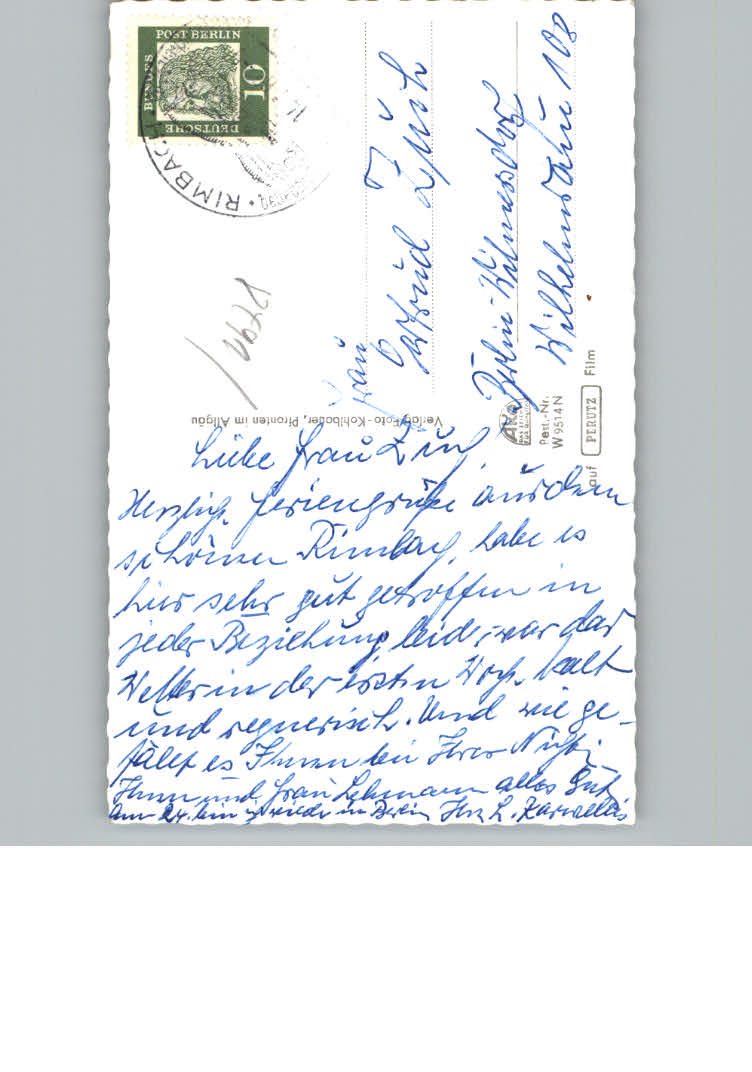 Liebe Frau Zuch,
Herzlich. Feriengrüße aus dem
schönen Rimbach, habe es
hier sehr gut getroffen in
jeder Beziehung, leider war das
Wetter in der ersten Woch. kalt
und regnerisch. Und wie ge-
fällt es Ihnen bei Ihrer Nichte
Ihnen und Frau Lehmann alles Gute
Am 24. bin ich wieder in Berlin Ihre L.
Frau
Zuch
Berlin-Wilmersdorf
Wilhelmsaue 108
DEUTSCHE
BUNDES
POST BERLIN
10
RIMBACH
Verlag Foto-Kohlbauer, Pfronten im Allgäu
AKO
Best.-Nr.
W 9514 N
auf PERUTZ Film